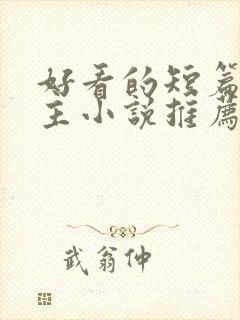 好看的短篇
主小說推薦
武翁仲